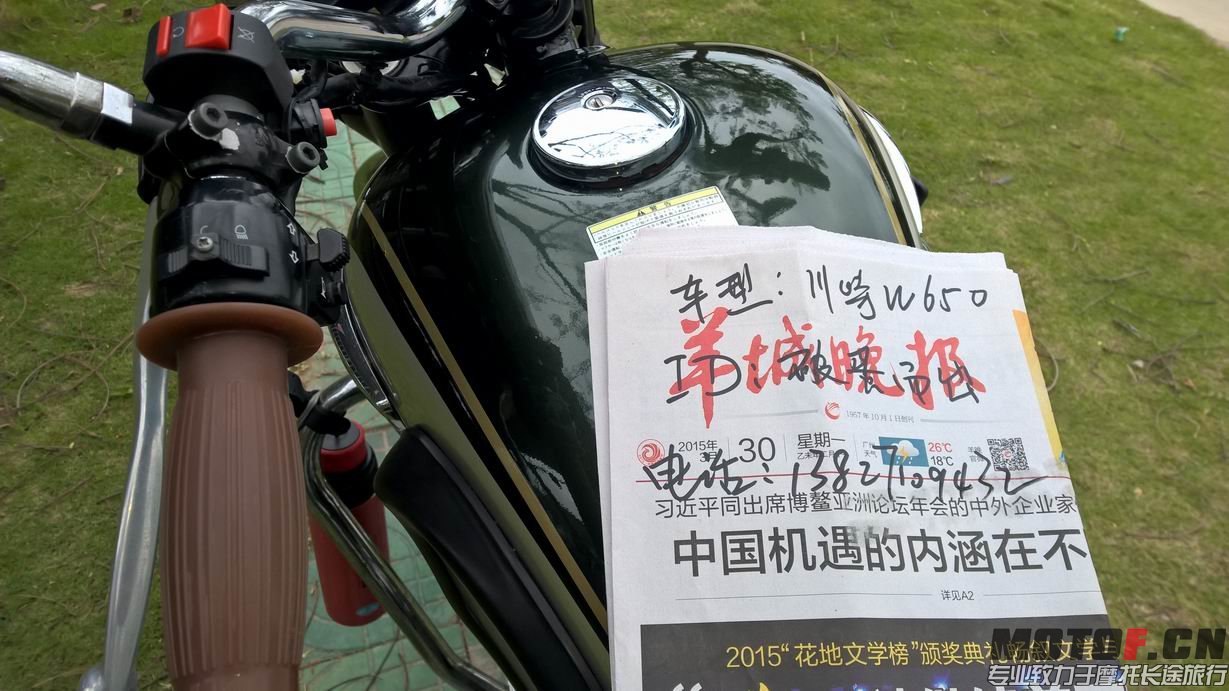 警告
车型：川崎W650
羊城晚报
ID：
1957年10月1日创刊
2015年
3月
30
星期一
广州
天气
26℃
18℃
电话：13827109432
习近平同出席博鳌亚洲论坛年会的中外企业家
中国机遇的内涵在不
详见A2
2015“花地文学榜”颁奖典礼
MOTOF.CN
专业致力于摩托长途旅行